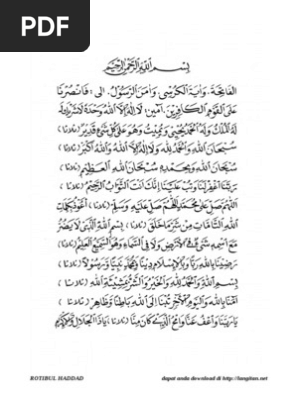 PDF
بِسْمِ اللهِ الرَّحْمٰنِ الرَّحِيْمِ
الفَاتِحَة. وَآيَةَ الْكُرْسِيْ. وَآمَنَ الرَّسُوْلُ. الى : فَانْصُرْنَا
عَلَى الْقَوْمِ الْكَافِرِيْنَ. آمين لَا اِلٰهَ اِلَّا اللهُ وَحْدَهُ لَاشَرِيْكَ لَهُ
لَهُ الْمُلْكُ وَلَهُ الْحَمْدُ يُحْيِيْ وَيُمِيْتُ وَهُوَ عَلَى كُلِّ شَيْءٍ قَدِيْرٌ (ثلاثا)
سُبْحَانَ اللهِ وَالْحَمْدُ لِلّٰهِ وَلَا اِلٰهَ اِلَّا اللهُ وَاللهُ اَكْبَرُ (ثلاثا)
سُبْحَانَ اللهِ وَبِحَمْدِهِ سُبْحَانَ اللهِ الْعَظِيْمِ (ثلاثا)
رَبَّنَا اغْفِرْلَنَا وَتُبْ عَلَيْنَا اِنَّكَ اَنْتَ التَّوَّابُ الرَّحِيْمُ (ثلاثا)
اَللّٰهُمَّ صَلِّ عَلَى مُحَمَّدٍ اَللّٰهُمَّ صَلِّ عَلَيْهِ وَسَلِّمْ (ثلاثا) اَعُوْذُ بِكَلِمَاتِ
اللهِ التَّامَّاتِ مِنْ شَرِّ مَا خَلَقَ (ثلاثا) بِسْمِ اللهِ الَّذِيْ لَا يَضُرُّ
مَعَ اسْمِهِ شَيْءٌ فِى الْاَرْضِ وَلَا فِى السَّمَاءِ وَهُوَ السَّمِيْعُ الْعَلِيْمُ (ثلاثا)
رَضِيْنَا بِاللهِ رَبًّا وَبِالْاِسْلَامِ دِيْنًا وَبِمُحَمَّدٍ نَبِيًّا وَرَسُوْلًا (ثلاثا)
بِسْمِ اللهِ وَالْحَمْدُ لِلّٰهِ وَالْخَيْرُ وَالشَّرُّ بِمَشِيْئَةِ اللهِ (ثلاثا)
آمَنَّا بِاللهِ وَالْيَوْمِ الْآخِرِ تُبْنَا اِلَى اللهِ بَاطِنًا وَظَاهِرْ (ثلاثا)
يَا رَبَّنَا وَاعْفُ عَنَّا وَامْحُ الَّذِيْ كَانَ مِنَّا (ثلاثا) يَاذَا الْجَلَالِ وَالْاِكْرَامِ
ROTIBUL HADDAD dapat anda download di http://langitan.net